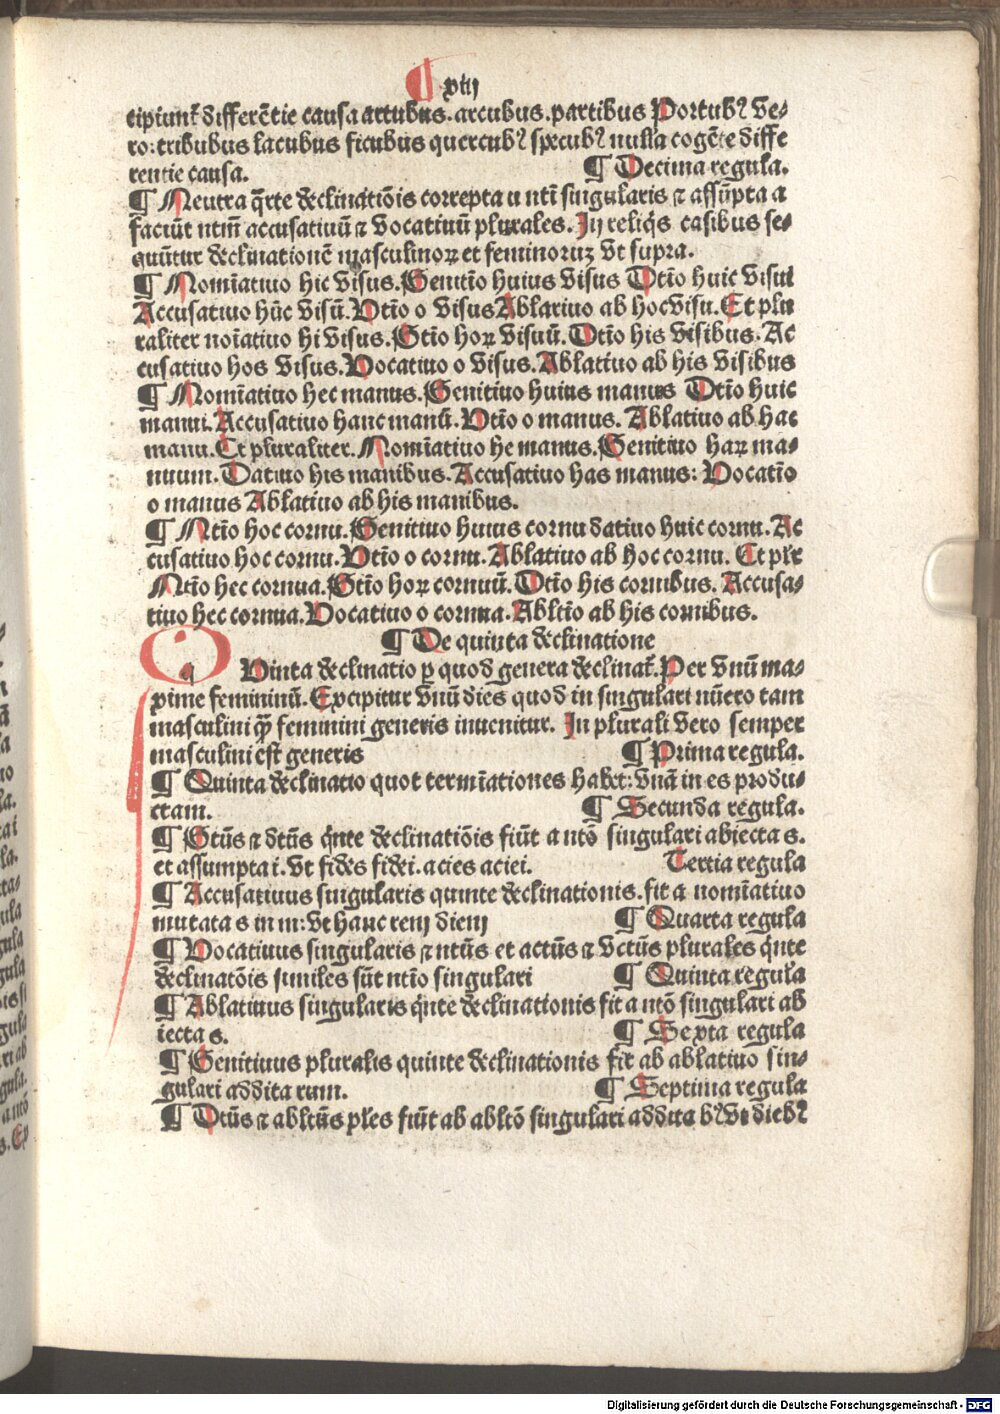 ¶ xiij
cipiunt᷑ differẽtie causa artubus. arcubus. partibus Portubꝰ ve⸗
ro: tribubus lacubus ficubus quercubꝰ specubꝰ nulla cogẽte diffe
rentie causa. ¶ Decima regula.
¶ Neutra q̃rte declinatiõis correpta u nti singularis ⁊ assũpta a
faciũt ntm̃ accusatiuũ ⁊ vocatiuũ plurales. In reliq̇s casibus se⸗
quũtur declinationẽ masculinoꝝ et feminoruꝫ vt supra.
¶ Nomĩatiuo hic visus. Genitĩo huius visus Dtĩo huic visui
Accusatiuo hũc visũ. Vtĩo o visus Ablatiuo ab hoc visu. Et plu
raliter noĩatiuo hi visus. Gtĩo hoꝝ visuũ. Dtĩo his visibus. Ac
cusatiuo hos visus. Vocatiuo o visus. Ablatiuo ab his visibus
¶ Nomĩatiuo hec manus. Genitiuo huius manus Dtĩo huic
manui. Accusatiuo hanc manũ. Vtĩo o manus. Ablatiuo ab hac
manu. Et pluraliter. Nomĩatiuo he manus. Genitiuo haꝝ ma⸗
nuum. Datiuo his manibus. Accusatiuo has manus: Vocatĩo
o manus Ablatiuo ab his manibus.
¶ Ntĩo hoc cornu. Genitiuo huius cornu datiuo huic cornu. Ac
cusatiuo hoc cornu. Vtĩo o cornu. Ablatiuo ab hoc cornu. Et plr̃
Ntĩo hec cornua. Gtĩo hoꝝ cornuũ. Dtĩo his cornibus. Accusa⸗
tiuo hec cornua. Vocatiuo o cornua. Abltĩo ab his cornibus.
¶ De quinta declinatione
Q Vinta declinatio ꝑ quod genera declinat᷑. Per vnũ ma⸗
xime femininũ. Excipitur vnũ dies quod in singulari nũero tam
masculini q̃ꝫ feminini generis inuenitur. In plurali vero semper
masculini est generis ¶ Prima regula.
¶ Quinta declinatio quot termĩationes habet: vnã in es produ⸗
ctam. ¶ Secunda regula.
¶ Gtũs ⁊ dtũs q̇nte declinatiõis fiũt a ntõ singulari abiecta s.
et assumpta i. vt fides fidei. acies aciei. Tertia regula
¶ Accusatiuus singularis quinte declinationis. fit a nomĩatiuo
mutata s in m: vt hanc rem diem ¶ Quarta regula
¶ Vocatiuus singularis ⁊ ntũs et actũs ⁊ vctũs plurales q̇nte
declinatõis similes sũt ntĩo singulari ¶ Quinta regula
¶ Ablatiuus singularis q̇nte declinationis fit a ntõ singulari ab
iecta s. ¶ Sexta regula
¶ Genitiuus pluralis quinte declinationis fit ab ablatiuo sin⸗
gulari addita rum. ¶ Septima regula
¶ Dtũs ⁊ abltũs ples fiũt ab abltõ singulari addita bꝰ vt diebꝰ
Digitalisierung gefördert durch die Deutsche Forschungsgemeinschaft - DFG